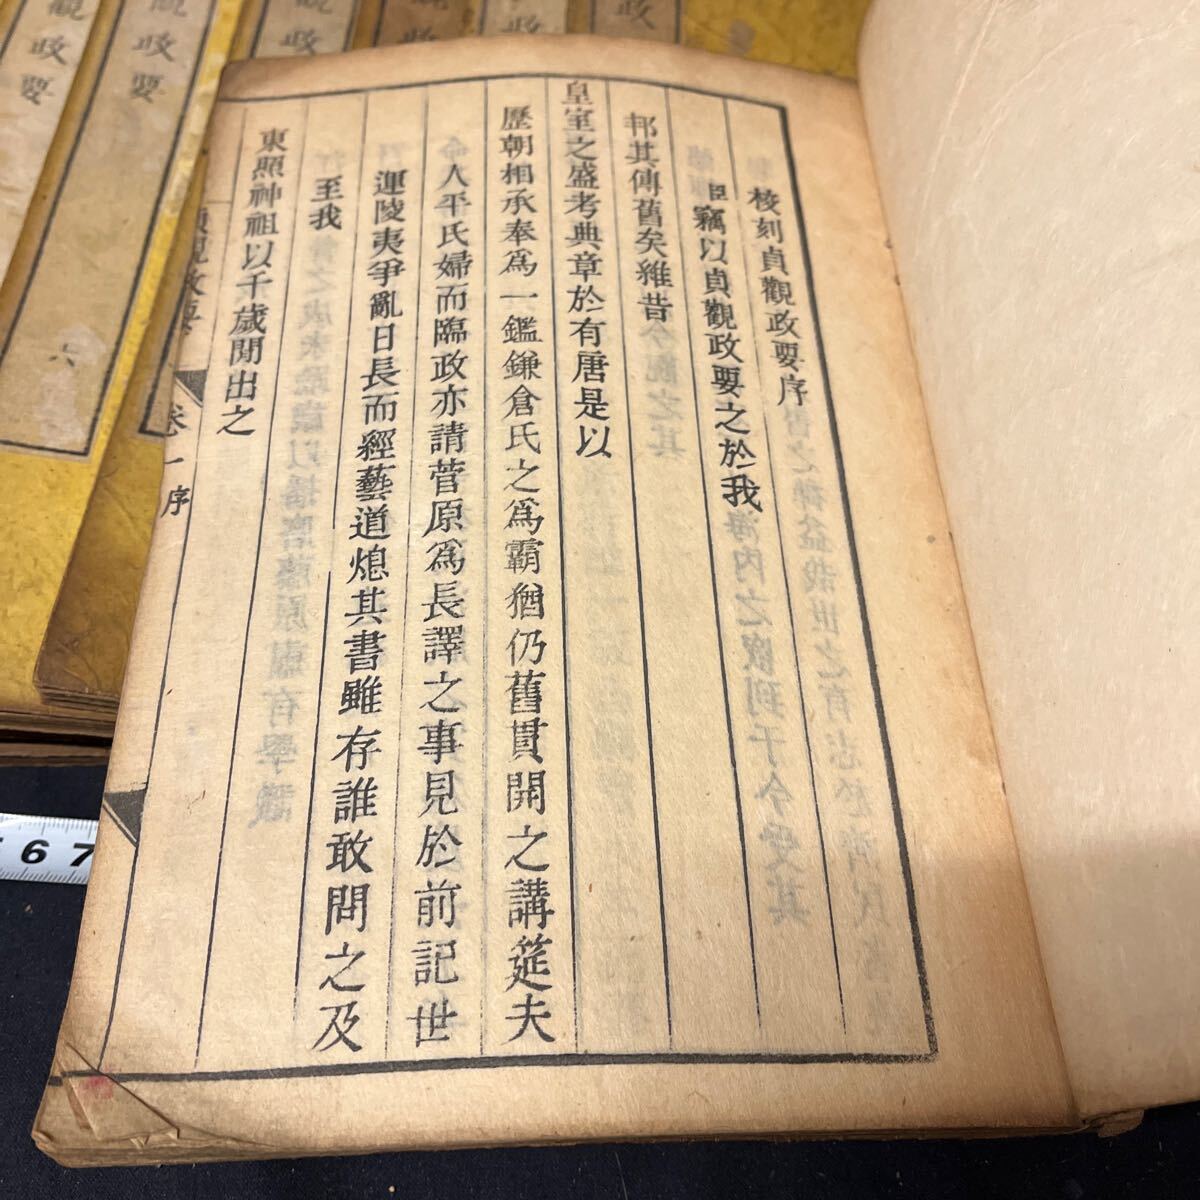 梭刻貞觀政要序
臣竊以貞觀政要之於我
邦其傳舊矣維昔
皇室之盛考典章於有唐是以
歷朝相承奉爲一鑑鎌倉氏之爲霸猶仍舊貫開之講筵夫
人平氏婦而臨政亦請菅原爲長譯之事見於前記世
運陵夷爭亂日長而經藝道熄其書雖存誰敢問之及
至我
東照神祖以千歲間出之
貞觀政要
卷一序
觀政要
觀政要
六
觀政要
觀政要
觀政要
政
6 7